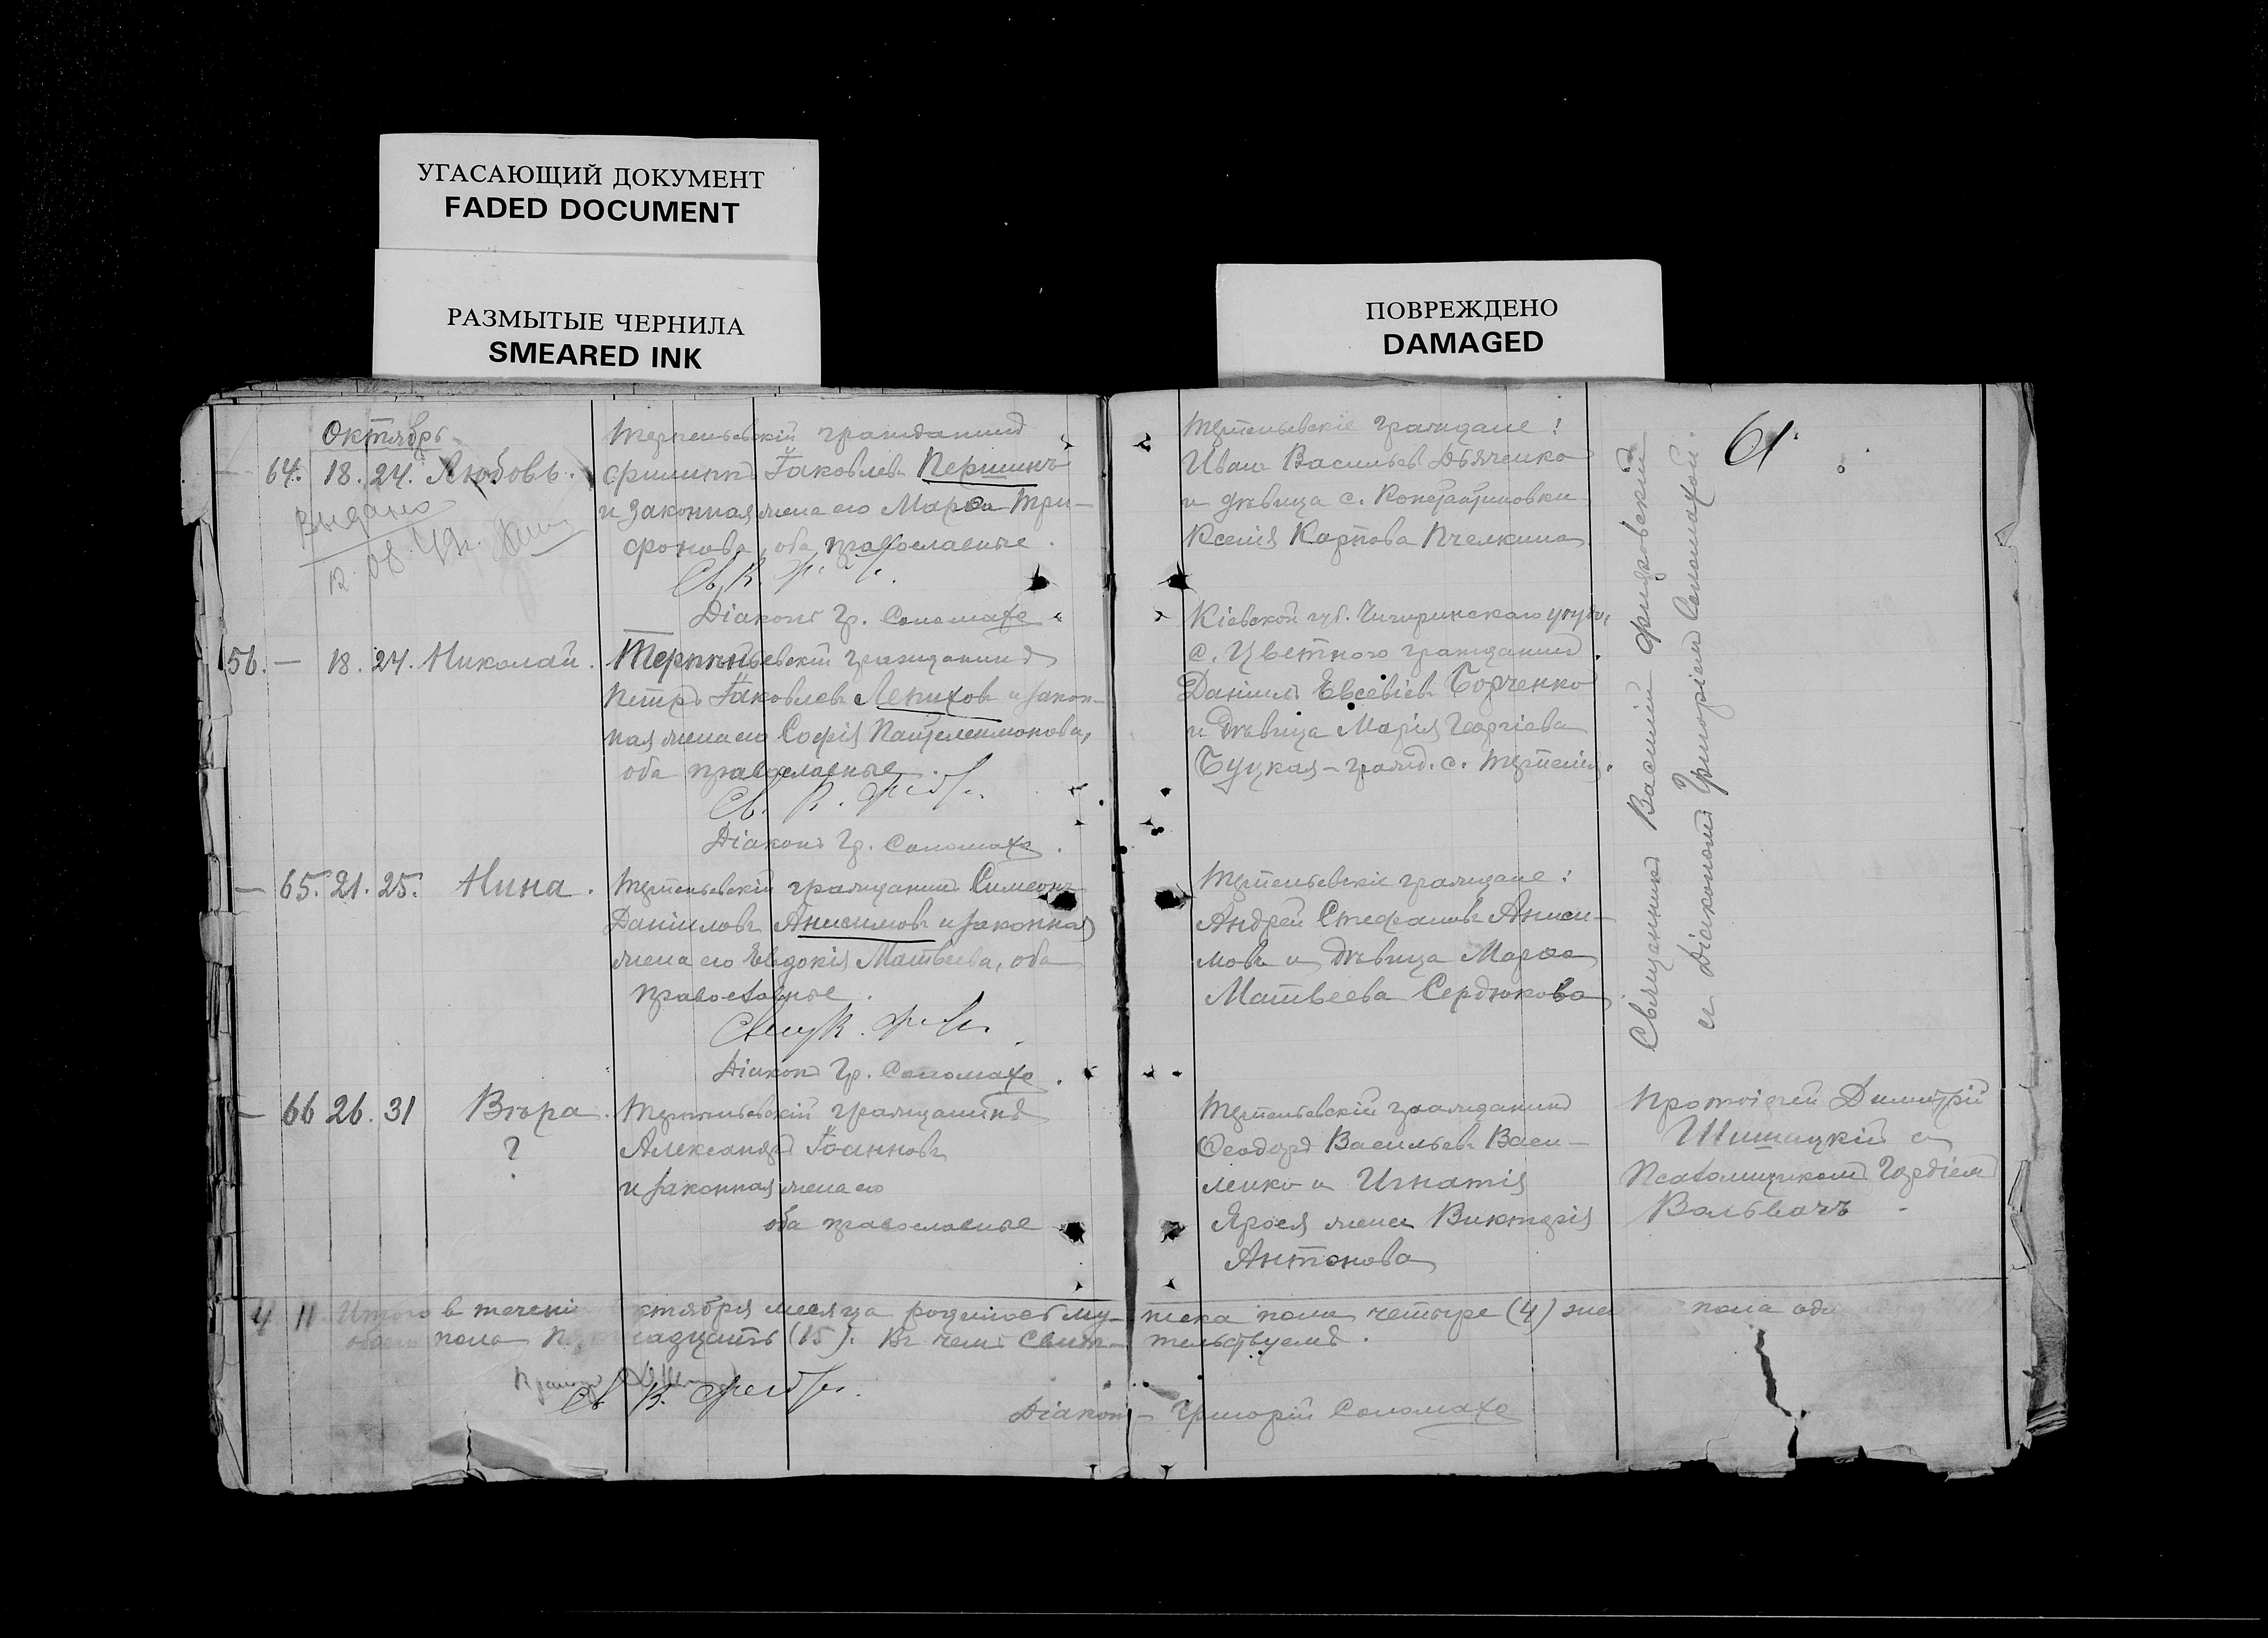 УГАСАЮЩИЙ ДОКУМЕНТ
FADED DOCUMENT
РАЗМЫТЫЕ ЧЕРНИЛА
SMEARED INK
ПОВРЕЖДЕНО
DAMAGED
Октябрь
64. 18. 24. Любовь.
Выдано
Терпеньевскій гражданинъ
Филиппъ Іаковлевъ Першинъ
и законная жена его Марѳа Три-
фонова, оба православные.
Діаконъ Гр. Соломаха.
Терпеньевскіе граждане:
Иванъ Васильевъ Дьяченко
и дѣвица с. Константиновки
Ксенія Карпова Пчелкина.
61.
Священник Василий
и Діакономъ Григоріемъ Соломахой.
56. — 18. 24. Николай.
Терпѣньевскій гражданинъ
Петръ Іаковлевъ Лепихов и закон-
ная жена его Софія Пантелеимонова,
оба православные.
Діаконъ Гр. Соломаха.
Кіевской губ. Чигиринскаго уѣзда,
с. Цвѣтного гражданинъ
Даніилъ Евсевіевъ Борченко
и дѣвица Марія Георгіева
Буцкая – гражд. с. Терпенія.
— 65. 21. 25. Нина.
Терпеньевскій гражданинъ Симеонъ
Даніиловъ Анисимовъ и законная
жена его Евдокія Матвеева, оба
православные.
Діаконъ Гр. Соломаха.
Терпеньевскіе граждане:
Андрей Стефановъ Аниси-
мовъ и дѣвица Марѳа
Матвеева Сердюкова
— 66 26. 31 Вѣра.
?
Терпеньевскій гражданинъ
Александръ Іоанновъ
и законная жена его
оба православные
Терпеньевскій гражданинъ
Ѳеодоръ Васильевъ Васи-
ленко и Игнатія
жена Викторія
Антонова
Протоіерей Димитрій
Шишацкій с
Псаломщикомъ Гордіем
Вольвачъ
4 11 Итого в течени октября месяца родилось му-
жска пола четыре (4) же пола
обоего пола (15). Въ чемъ свидѣ-
тельствуемъ.
Діакон Григорій Соломаха